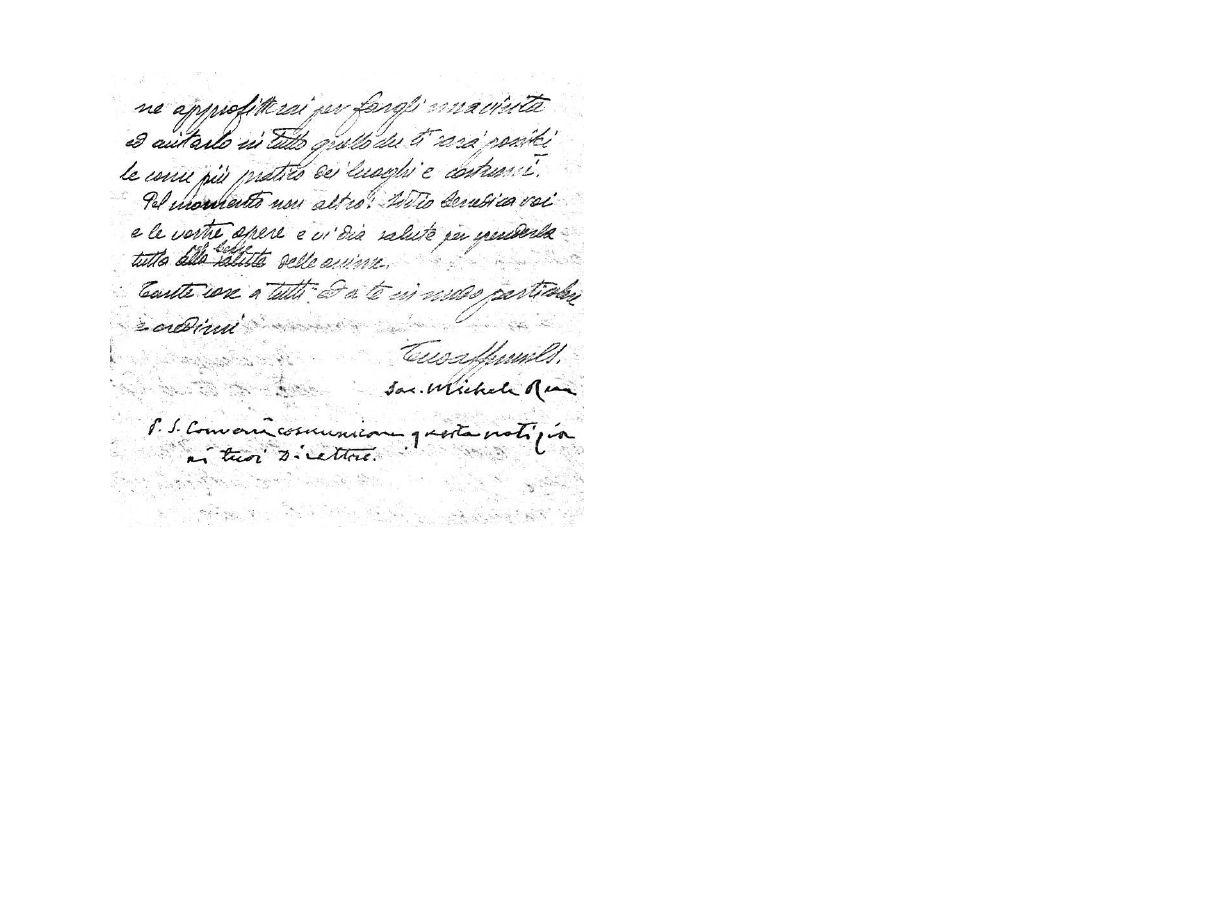 ne approfitterai per fargli una visita
ed aiutarlo in tutto quello che ti sarà possibi
le come più pratico dei luoghi e costumi.
Pel momento non altro. Iddio benedica voi
e le vostre opere e vi dia salute per spenderla
tutta alla salute delle anime.
pel bene
Tante cose a tutti ed a te in modo particolare
e credimi
Tuo affmo
Sac. Michele Rua
P. S. Converrà comunicare questa notizia
ai tuoi Direttori.